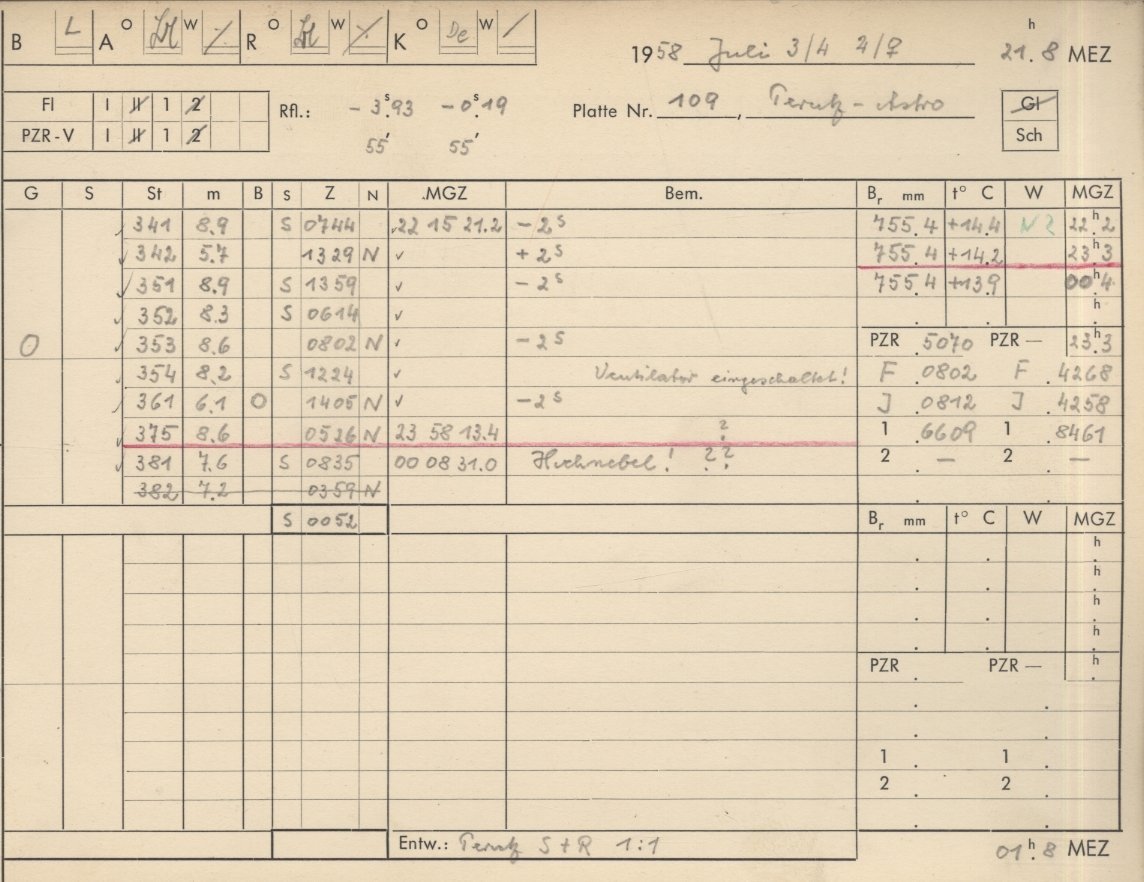 B L A O W R O W K O De W /
1958 Juli 3/4 21.8 h MEZ
Fl I II 1 2 Rfl.: -3.s93 -0.s19 Platte Nr. 109, Perutz-Astro Gl
PZR-V I II 1 2 55' 55' Sch
G S St m B S Z N MGZ Bem. Br mm t° C W MGZ
✓ 341 8.9 S 0744 22 15 21.2 -2s 755.4 +14.4 22.h2
✓ 342 5.7 1329 N ✓ +2s 755.4 +14.2 23.h3
✓ 351 8.9 S 1359 ✓ -2s 755.4 +13.9 00.h4
✓ 352 8.3 S 0614 ✓ . . h.
0 ✓ 353 8.6 0802 N ✓ -2s PZR .5070 PZR — 23.h3
✓ 354 8.2 S 1224 ✓ Ventilator eingeschaltet! F .0802 F .4268
✓ 361 6.1 O 1405 N ✓ -2s J .0812 J .4258
✓ 375 8.6 0526 N 23 58 13.4 ? 1 .6609 1 .8461
✓ 381 7.6 S 0835 00 08 31.0 Hochnebel! ?? 2 . — 2 . —
382 7.2 0359 N
S 0052 Br mm t° C W MGZ
. . h
. . h.
. . h.
. . h.
PZR . PZR — h.
1 . 1 .
2 . 2 .
Entw.: Perutz S+R 1:1 01.h8 MEZ